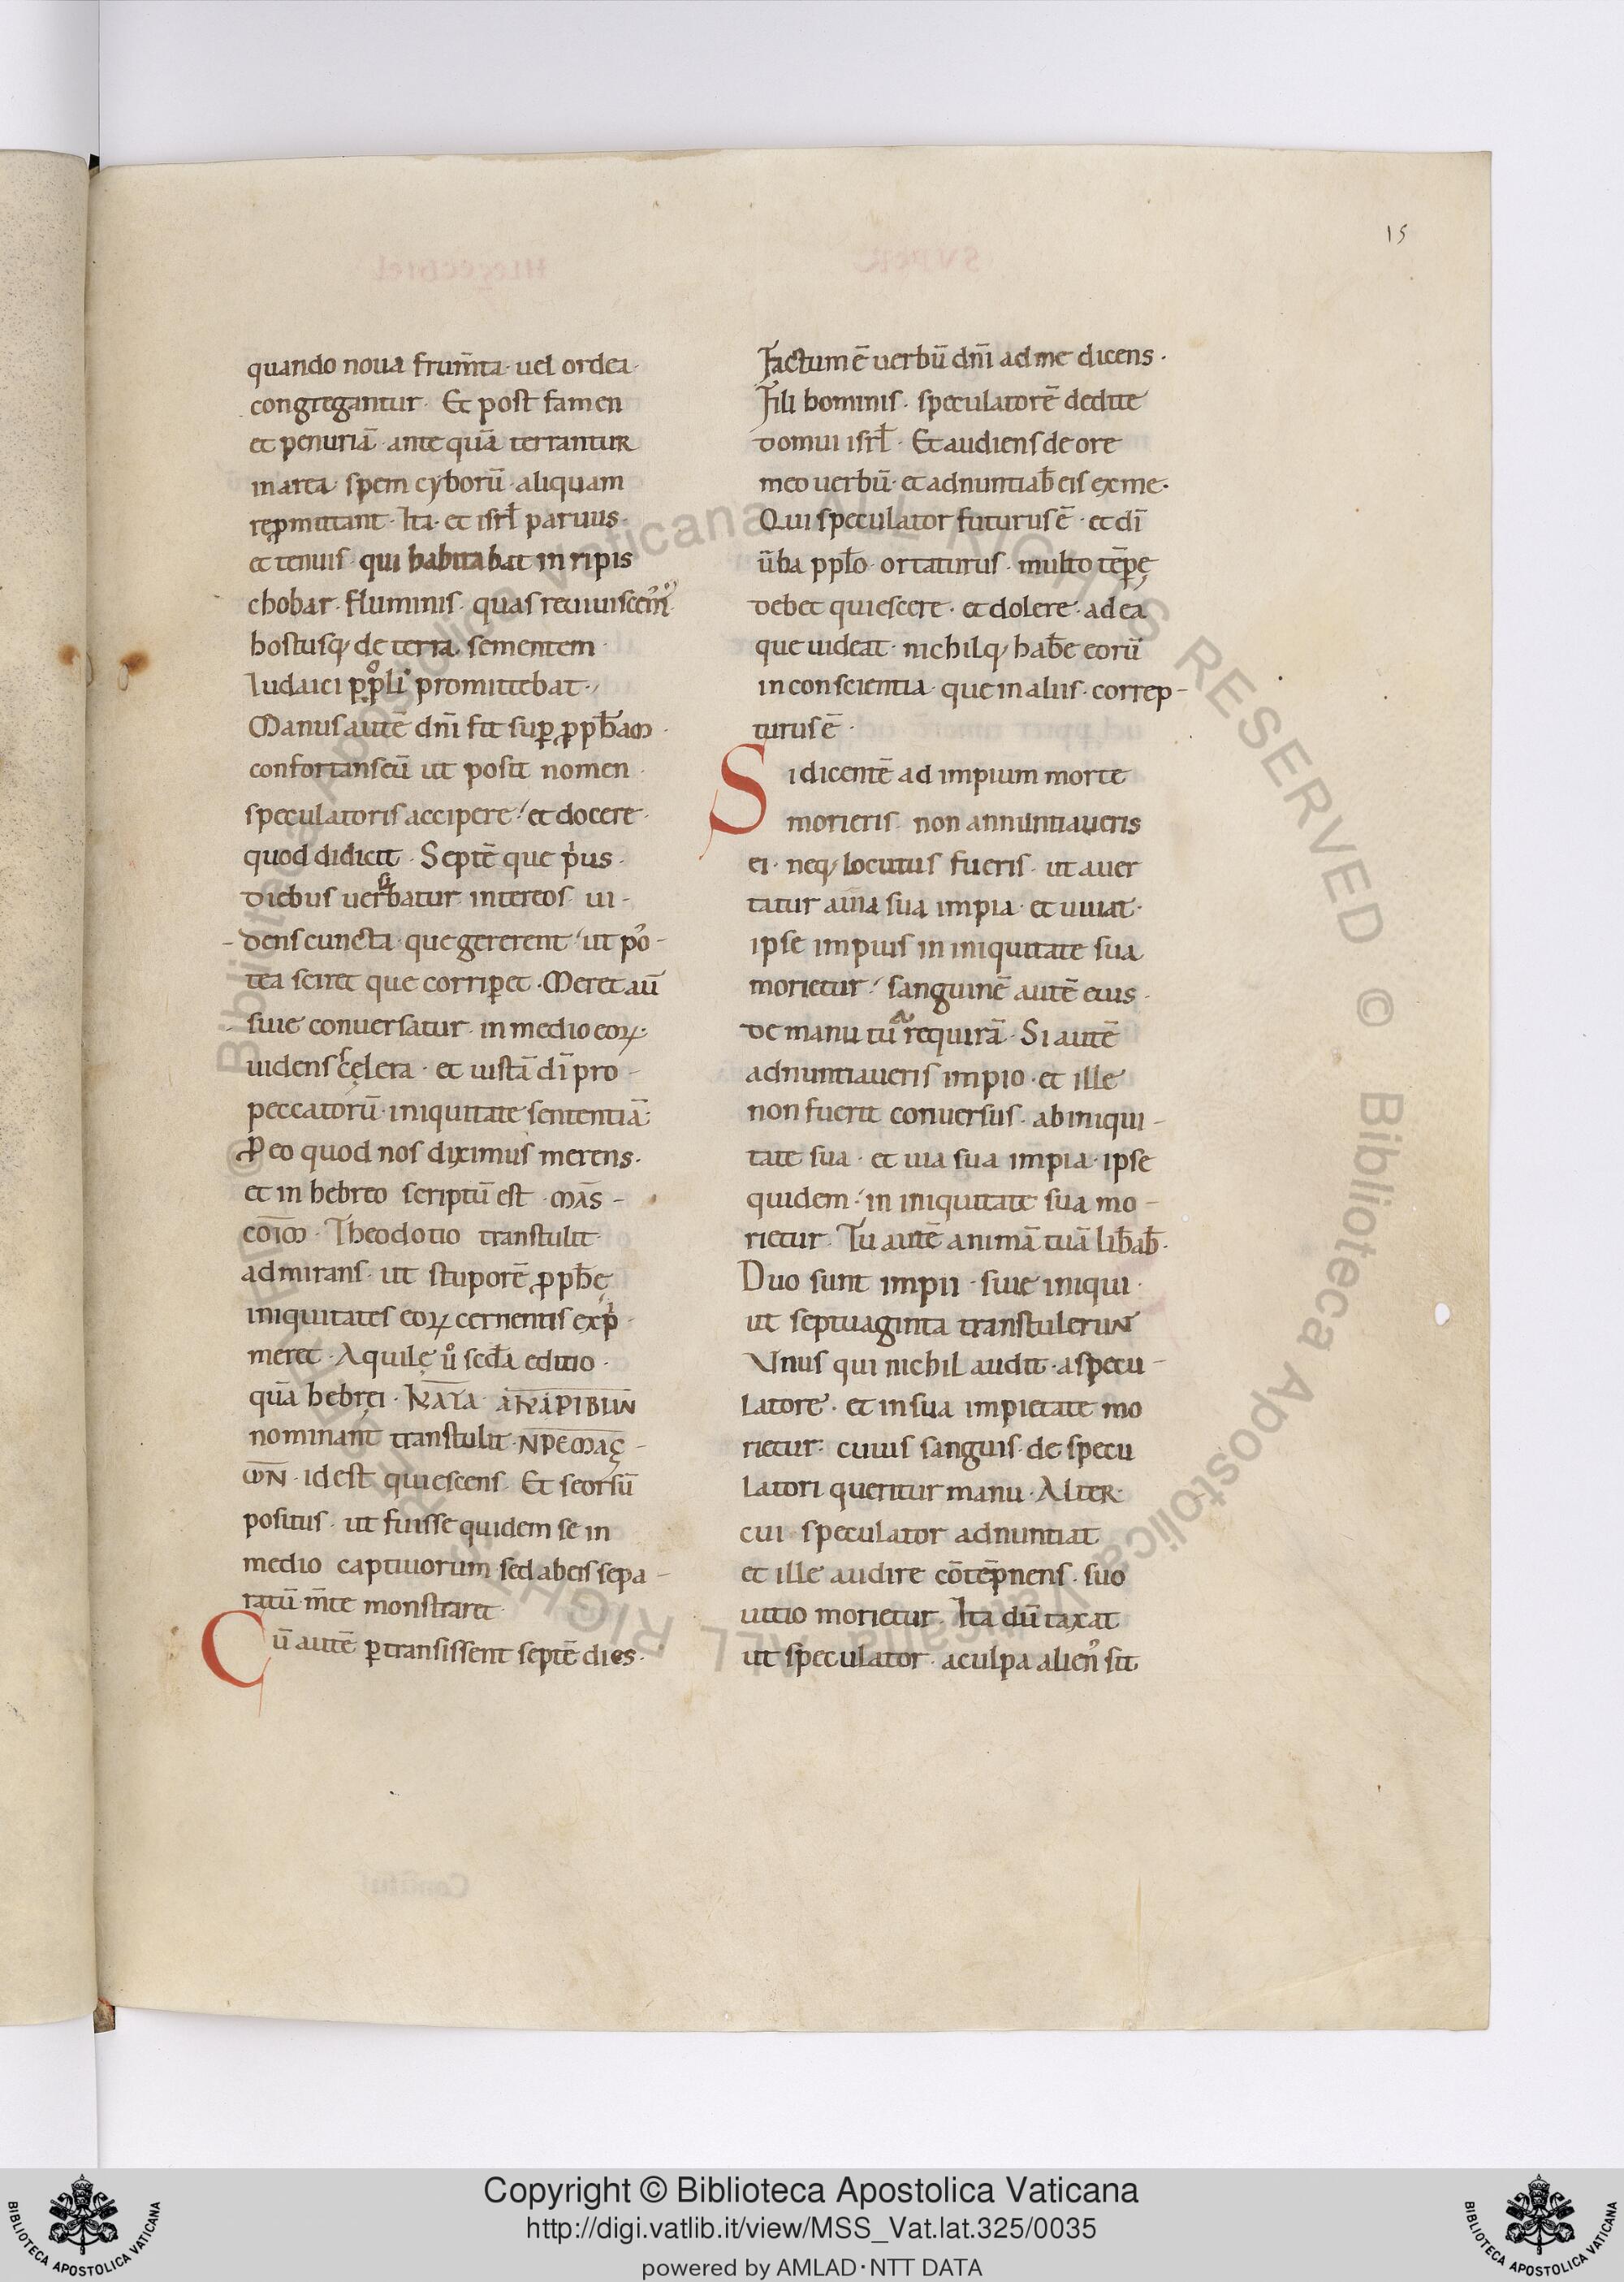 15
quando noua frum̄ta· uel ordea·
congregantur· Et post famen
et penuriā· ante quā terrantur
in area· spem cyborū· aliquam
rep̱mittant· Ita· et isrł paruus·
et tenuis· qui habitabat in ripis
chobar· fluminis·
hostusq; de terra· sementem·
Iudaici promittebat·
Manus autē dn̄i fit sup̱ p̱ph̄am·
confortans eū ut posit nomen·
speculatoris accipere· et docere·
quod didicit· Septē que p̓us·
diebus uersabatur intereos· ui-
dens cuncta· que gererent· ut po᷒-
tea sciret que corrip̱et· Meret aū
siue conuersatur· in medio eoꝝ·
uidens scęlera· et iustā dī pro-
peccatorū· iniquitate sententiā·
P̱ eo quod nos diximus merens·
et in hebreo scriptū est· mās-
coīm· Theodotio transtulit·
admirans· ut stuporē p̱ph̄ę
iniquitates eoꝝ cernentis exp̓
meret· Aquilę ů sed̄a editio·
quā hebręi·
nominant transtulit·
ω̄N· id est quiescens· Et seorsū
positus· ut fuisse quidem se in
medio captiuorum sed abeis sepa-
ratū m̄te monstraret·
Cū autē p̱transissent septē dies·
Factum ē uerbū dn̄i ad me dicens·
Fili hominis· speculatorē dedite
domui isrł· Et audiens de ore
meo uerbū· et adnuntiab̄ eis ex me·
Qui speculator futurus ē· et dī
ūba pplo̅· ortaturus· multo tēpę
debet quiescere· et dolere· ad ea
que uideat· nichilq; hab̄e eorū
in conscientia· que in aliis· correp-
turus ē·
Si dicentē ad impium morte
morieris· non annuntiaueris
ei· neq; locutus fueris· ut auer
tatur a uia sua impia· et uiuat·
ipse impius in iniquitate sua
morietur· sanguinē autē eius·
de manu tua requirā· Si autē
adnuntiaueris impio· et ille
non fuerit conuersus· ab iniqui-
tate sua· et uia sua impia· ipse
quidem· in iniquitate sua mo-
rietur· Tu autē animā tuā lib̄ab̄·
Duo sunt impii· siue iniqui·
ut septuaginta transtulerunt
Vnus qui nichil audit· a specu-
latore· et in sua impietate mo
rietur· cuius sanguis· de specu
latori queritur manu· Alter·
cui· speculator adnuntiat
et ille audire cōtēpnens· suo
uitio morietur· Ita dū taxat
ut speculator· a culpa alien᷒ sit
Copyright © Biblioteca Apostolica Vaticana
http://digi.vatlib.it/view/MSS_Vat.lat.325/0035
powered by AMLAD·NTT DATA